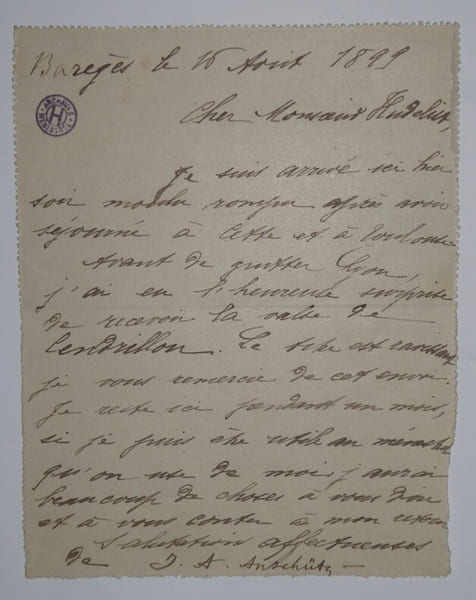 Barèges le 16 Août 1899
ARCHIVES
H
MENESTREL
Cher Monsieur
Je suis arrivé ici hier
soir moulu rompu après avoir
séjourné à Cette et à Toulouse
Avant de quitter Lyon,
j'ai eu l'heureuse surprise
de recevoir la valse de
Cendrillon. Le titre est ravissant
je vous remercie de cet envoi.
Je reste ici pendant un mois,
si je puis être utile au ménestrel
qu'on use de moi, j'aurai
beaucoup de choses à vous dire
et à vous conter à mon retour
Salutation affectueuses
de J. A. Anschütz